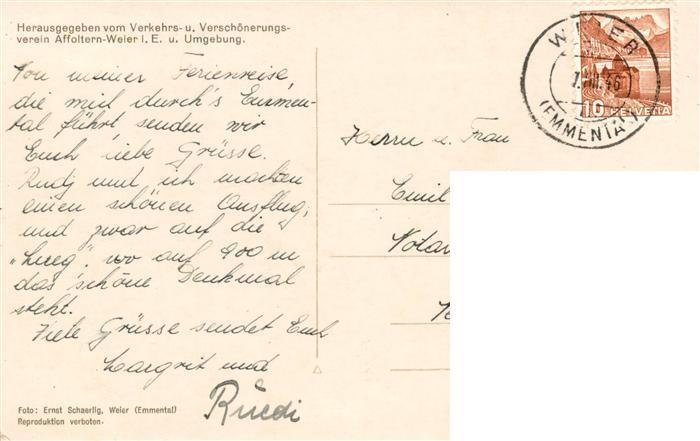 Herausgegeben vom Verkehrs- u. Verschönerungs-
verein Affoltern-Weier i. E. u. Umgebung.
Von meiner Ferienreise,
die mich durch's Emmen-
tal führt, senden wir
Euch liebe Grüsse.
Rudj und ich machten
einen schönen Ausflug,
und zwar auf die
"Lueg", wo auf 900 m
das schöne Denkmal
steht.
Viele Grüsse sendet Euch
Margrit und
Ruedi
Foto: Ernst Schaerlig, Weier (Emmental)
Reproduktion verboten.
WEIER
(EMMENTAL)
10 HELVETIA
Herrn u. Frau
Emil
Notar